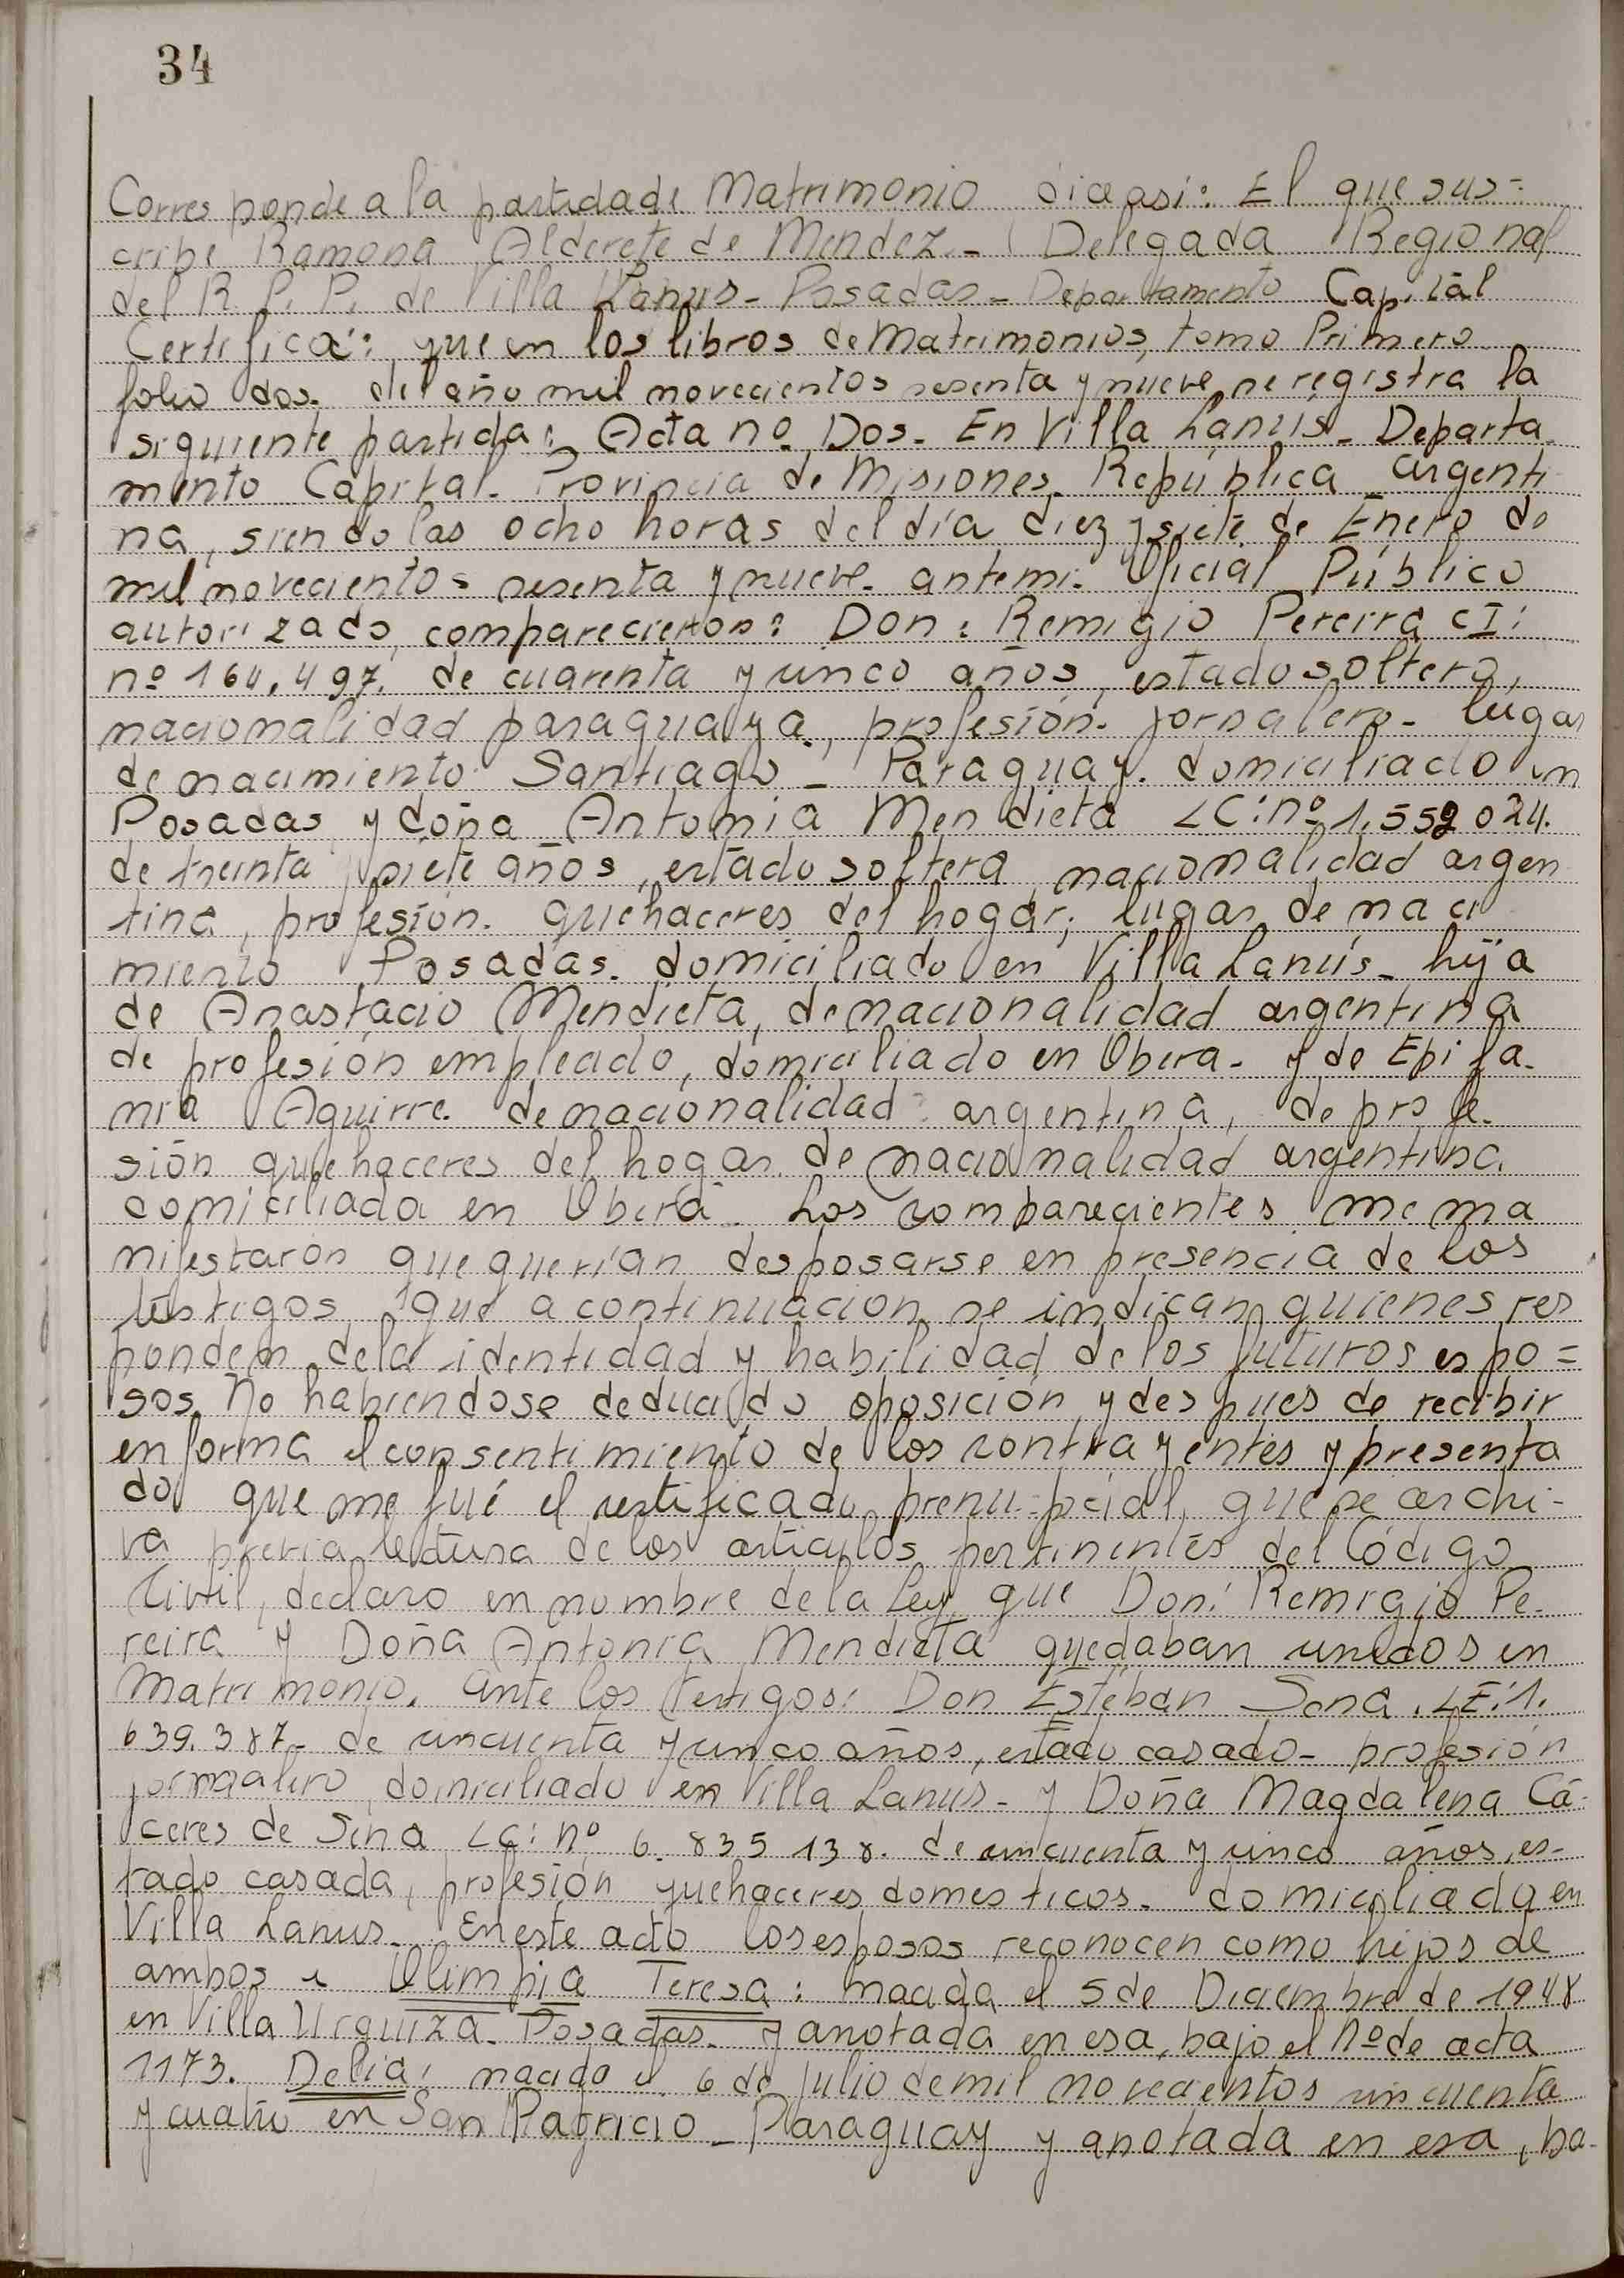 34
Corresponde a la partida de Matrimonio dice asi: El que sus=
cribe Ramona Alderete de Mendez.- Delegada Regional
del R. P. P. de Villa Lanus - Posadas - Departamento Capital
Certifica: que en los libros de Matrimonios, tomo Primero
folio dos. del año mil novecientos sesenta y nueve se registra la
siguiente partida: Acta nº Dos- En Villa Lanús- Departa
mento Capital- Provincia de Misiones- República argenti
na, siendo las ocho horas del día diez y siete de Enero de
mil novecientos sesenta y nueve- ante mi- Oficial Público
autorizado, comparecieron: Don: Remigio Pereira CI:
nº 164.497. de cuarenta y cinco años, estado soltero,
nacionalidad paraguaya, profesión- jornalero- lugar
de nacimiento Santiago - Paraguay. domiciliado en
Posadas y doña Antonia Mendieta LC: nº 1.552 024.
de treinta y siete años, estado soltera, nacionalidad argen
tina, profesión- quehaceres del hogar; lugar de naci
miento Posadas- domiciliado en Villa Lanús- hija
de Anastacio Mendieta, de nacionalidad argentina
de profesión empleado, domiciliado en Obera- y de Epifa-
nia Aguirre de nacionalidad argentina, de profe-
sión quehaceres del hogar de nacionalidad argentina
domiciliada en Oberá- Los comparecientes me ma
nifestaron que querían desposarse en presencia de los
testigos que a continuacion se indican quienes res
ponden de la identidad y habilidad de los futuros espo=
sos. No habiendose deducido oposición y des pues de recibir
en forma el consentimiento de los contrayentes y presenta
do que me fué el certificado prenu-pcial, que se archi-
va previa lectura de los articulos pertinentes del Código
Civil, declaro en nombre de la Ley que Don: Remigio Pe-
reira y Doña Antonia Mendieta quedaban unidos en
Matrimonio. ante los testigos: Don Estéban Sena. LE: 1.
639.387- de cincuenta y cinco años, estado casado- profesión
jornalero, domiciliado en Villa Lanus- y Doña Magdalena Cá-
ceres de Sena LC: nº 6.835 138. de cincuenta y cinco años, es-
tado casada, profesión quehaceres domesticos- domiciliada en
Villa Lanus- En este acto los esposos reconocen como hijos de
ambos a Olimpia Teresa: nacida el 5 de Diciembre de 1948
en Villa Urquiza- Posadas- y anotada en esa, bajo el nº de acta
1173. Delia: nacida el 6 de julio de mil novecientos cincuenta
y cuatro en San Patricio - Paraguay y anotada en esa, ba-